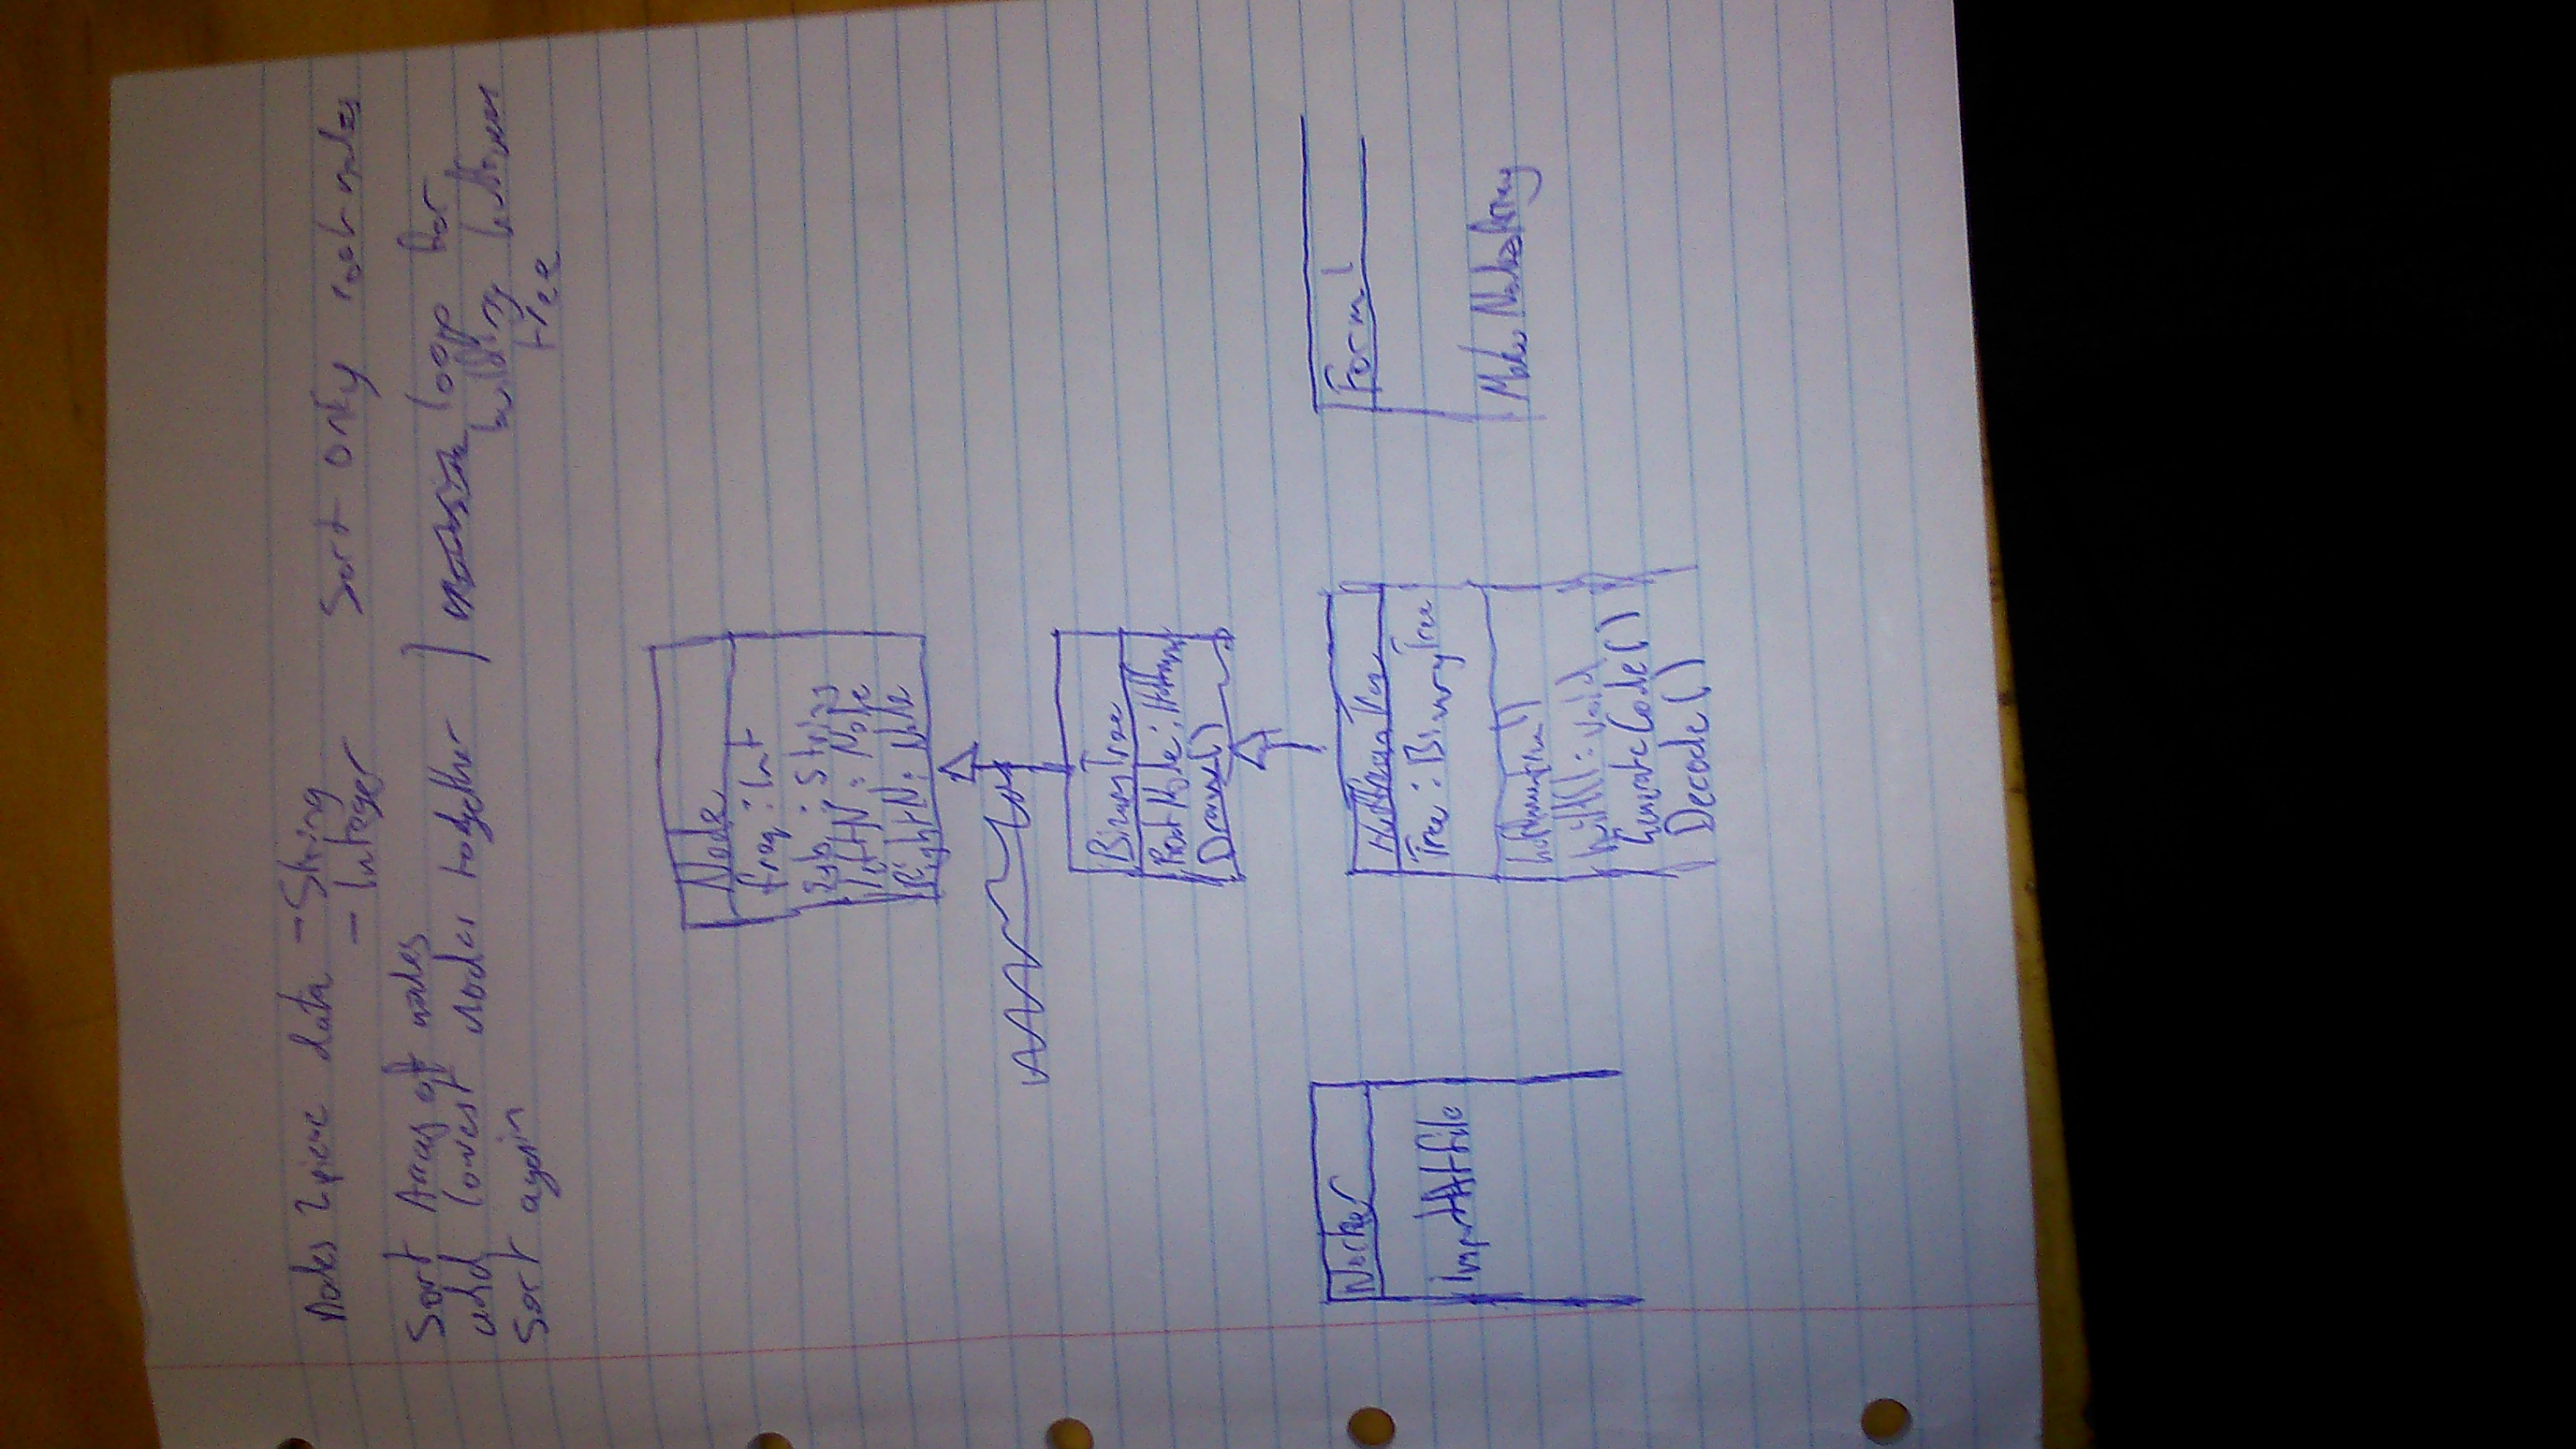 Nodes 2 piece data - String
- Integer
Sort only root nodes
Sort Array of nodes
add lowest nodes together
Sort again
loop for
building huffman
tree
Node
freq : Int
: String
leftN : Node
RightN : Node
BinaryTree
RootNode : Huffman
Draw()
Worker
Import
file
HuffmanTree
Tree : BinaryTree
huffmanTree()
built() : void
GenerateCode()
Decode()
Form1
Make Nodes Array